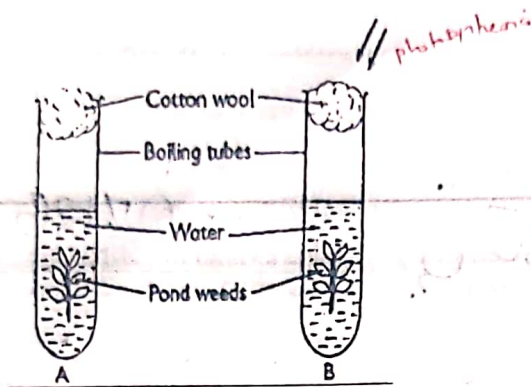 photosythesis
Cotton wool
Boiling tubes
Water
Pond weeds
A
B